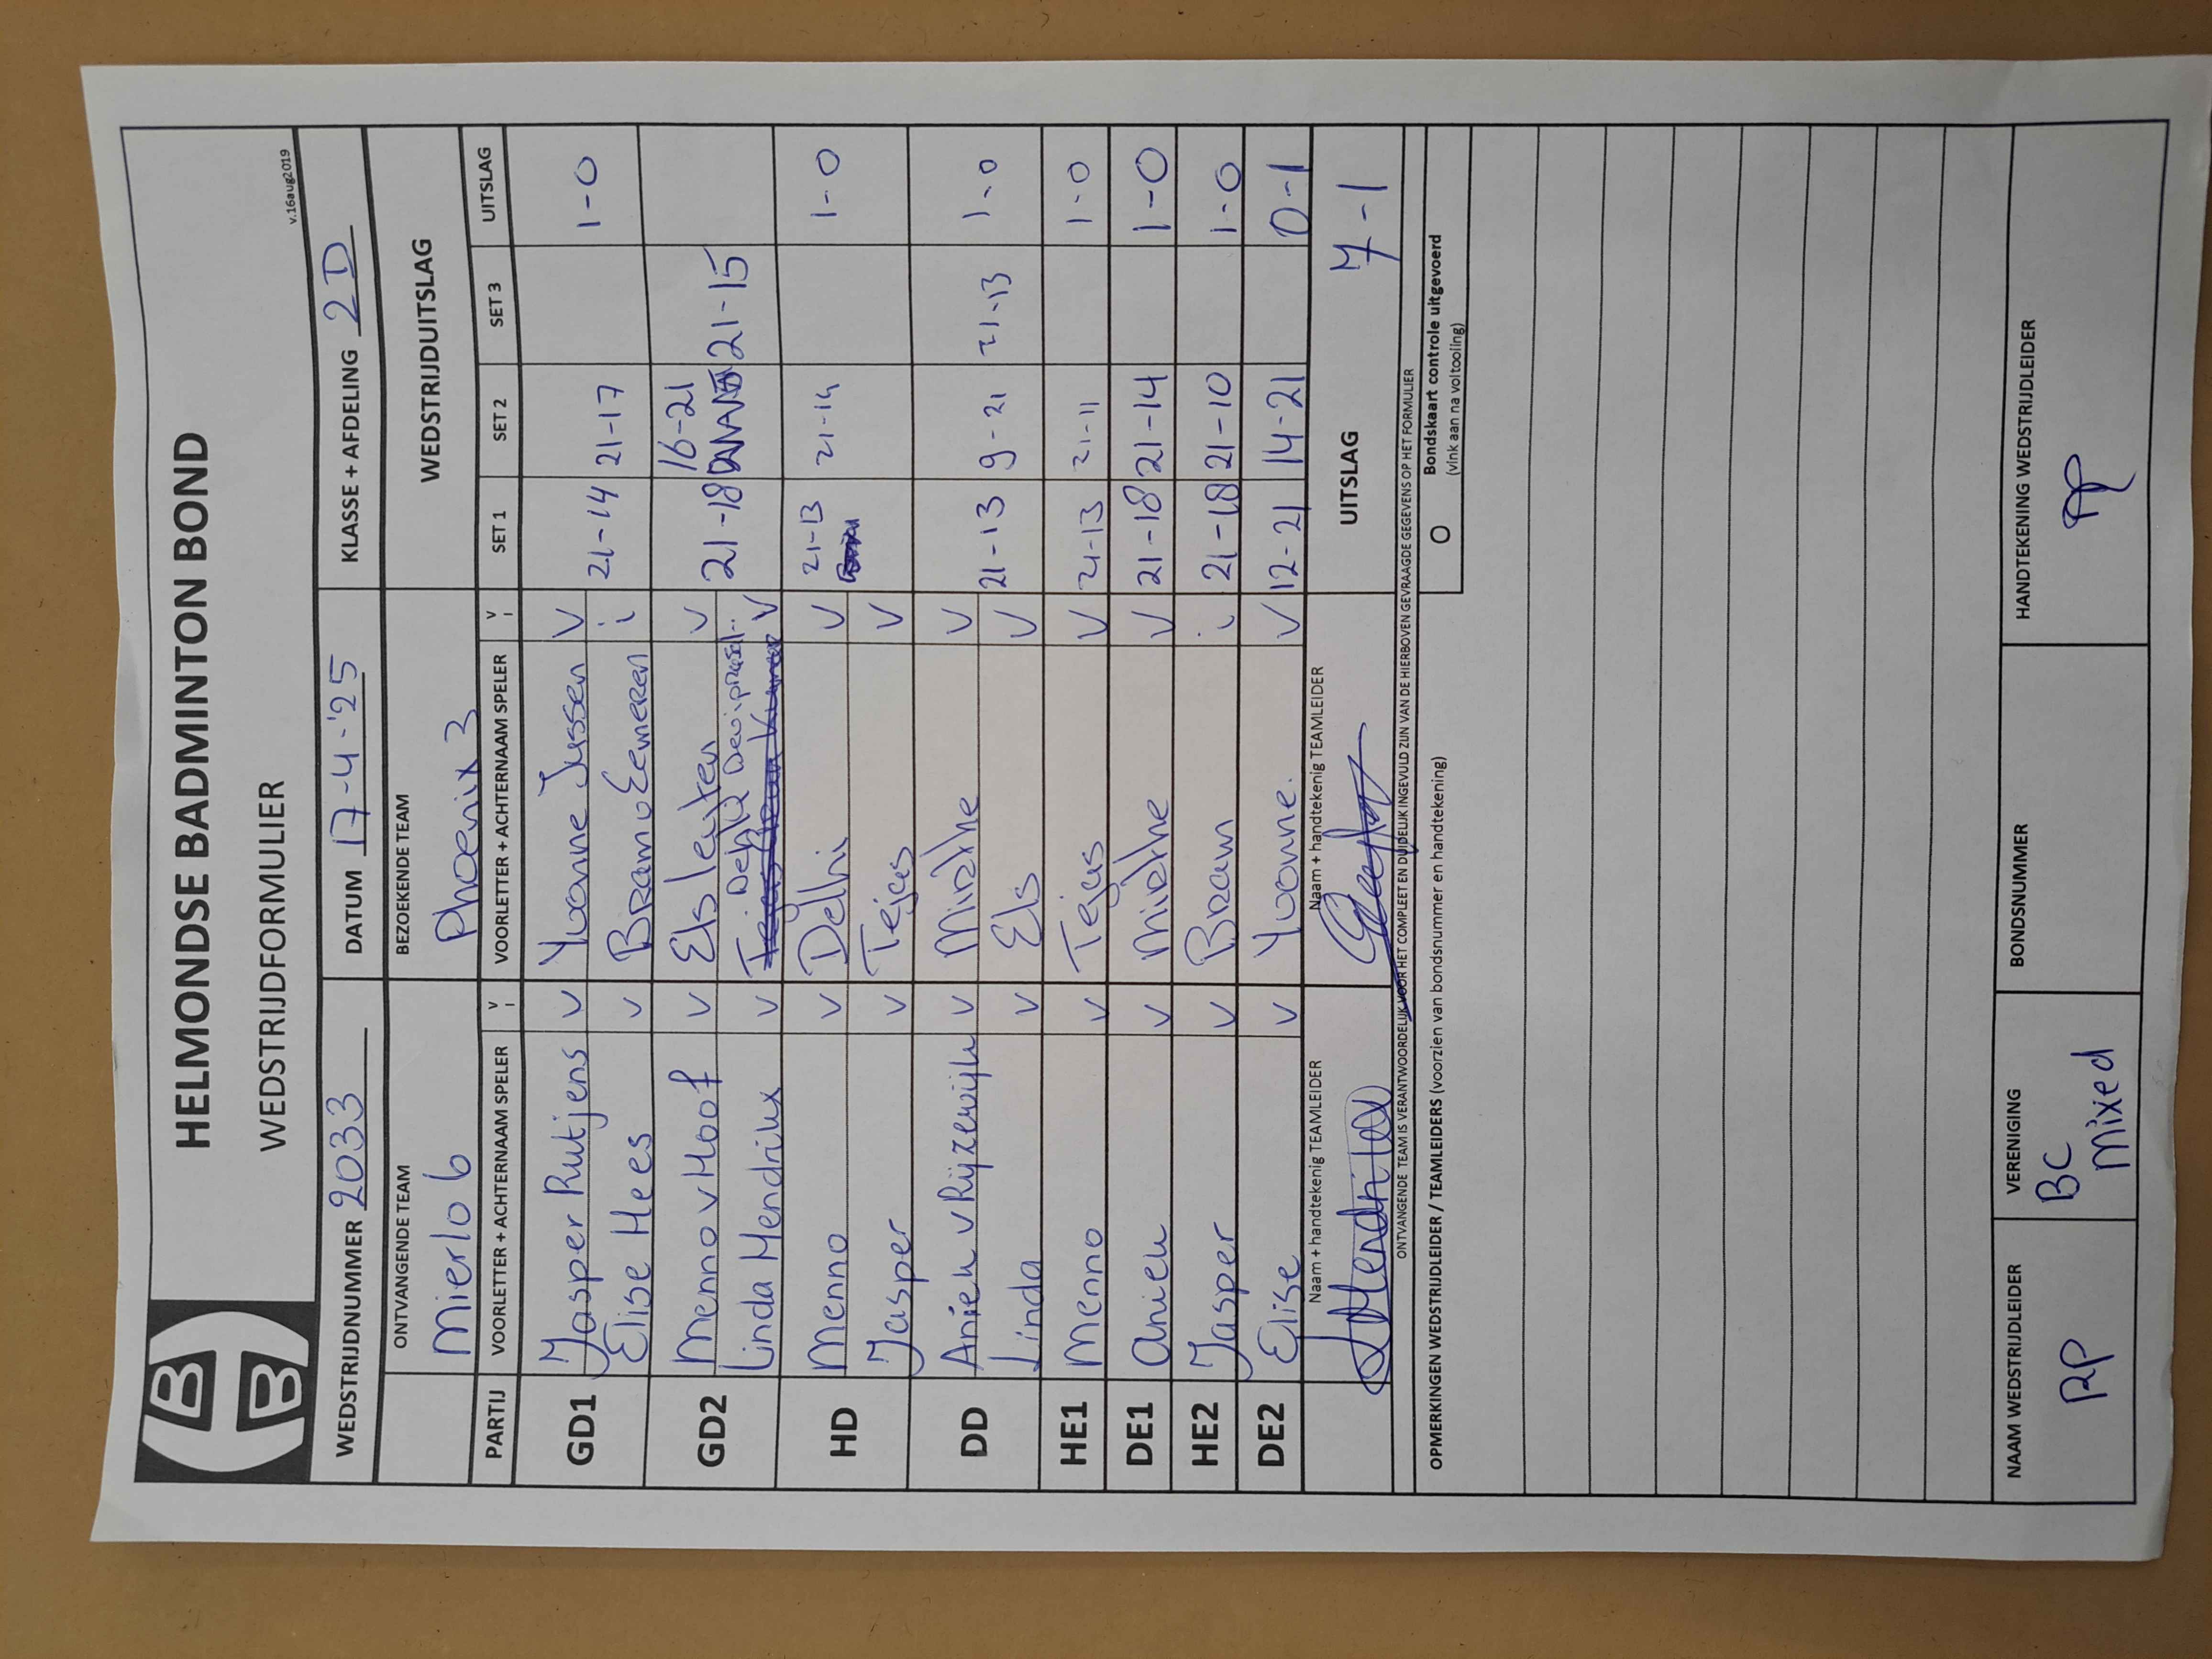 HELMONDSE BADMINTON BOND
WEDSTRIJDFORMULIER
v.16aug2019
WEDSTRIJDNUMMER 2033 DATUM 17-4-'25 KLASSE + AFDELING 2D
ONTVANGENDE TEAM BEZOEKENDE TEAM WEDSTRIJDUITSLAG
Mierlo 6 Phoenix 3
PARTIJ VOORLETTER + ACHTERNAAM SPELER V I VOORLETTER + ACHTERNAAM SPELER V I SET 1 SET 2 SET 3 UITSLAG
GD1 Jasper Rutjens V Yvonne Jussen V 21-14 21-17 1-0
Elise Hees V Bram v Eemeren i
GD2 Menno v Hoof V Els Leuten V 21-18 16-21 21-15
Linda Hendrikx V V
HD Menno V Delhi V 21-13 21-14 1-0
Jasper V Tejas V
DD Aniek v Rijzewijk V Mirthe V 21-13 9-21 21-13 1-0
Linda V Els V
HE1 Menno V Tejas V 21-13 21-11 1-0
DE1 Aniek V Mirthe V 21-18 21-14 1-0
HE2 Jasper V Bram i 21-18 21-10 1-0
DE2 Elise V Yvonne. V 12-21 14-21 0-1
Naam + handtekenig TEAMLEIDER Naam + handtekenig TEAMLEIDER UITSLAG 7-1
LHendrikx
ONTVANGENDE TEAM IS VERANTWOORDELIJK VOOR HET COMPLEET EN DUIDELIJK INGEVULD ZIJN VAN DE HIERBOVEN GEVRAAGDE GEGEVENS OP HET FORMULIER
OPMERKINGEN WEDSTRIJDLEIDER / TEAMLEIDERS (voorzien van bondsnummer en handtekening)
O Bondskaart controle uitgevoerd
(vink aan na voltooiing)
NAAM WEDSTRIJDLEIDER VERENIGING BONDSNUMMER HANDTEKENING WEDSTRIJDLEIDER
RP BC
mixed